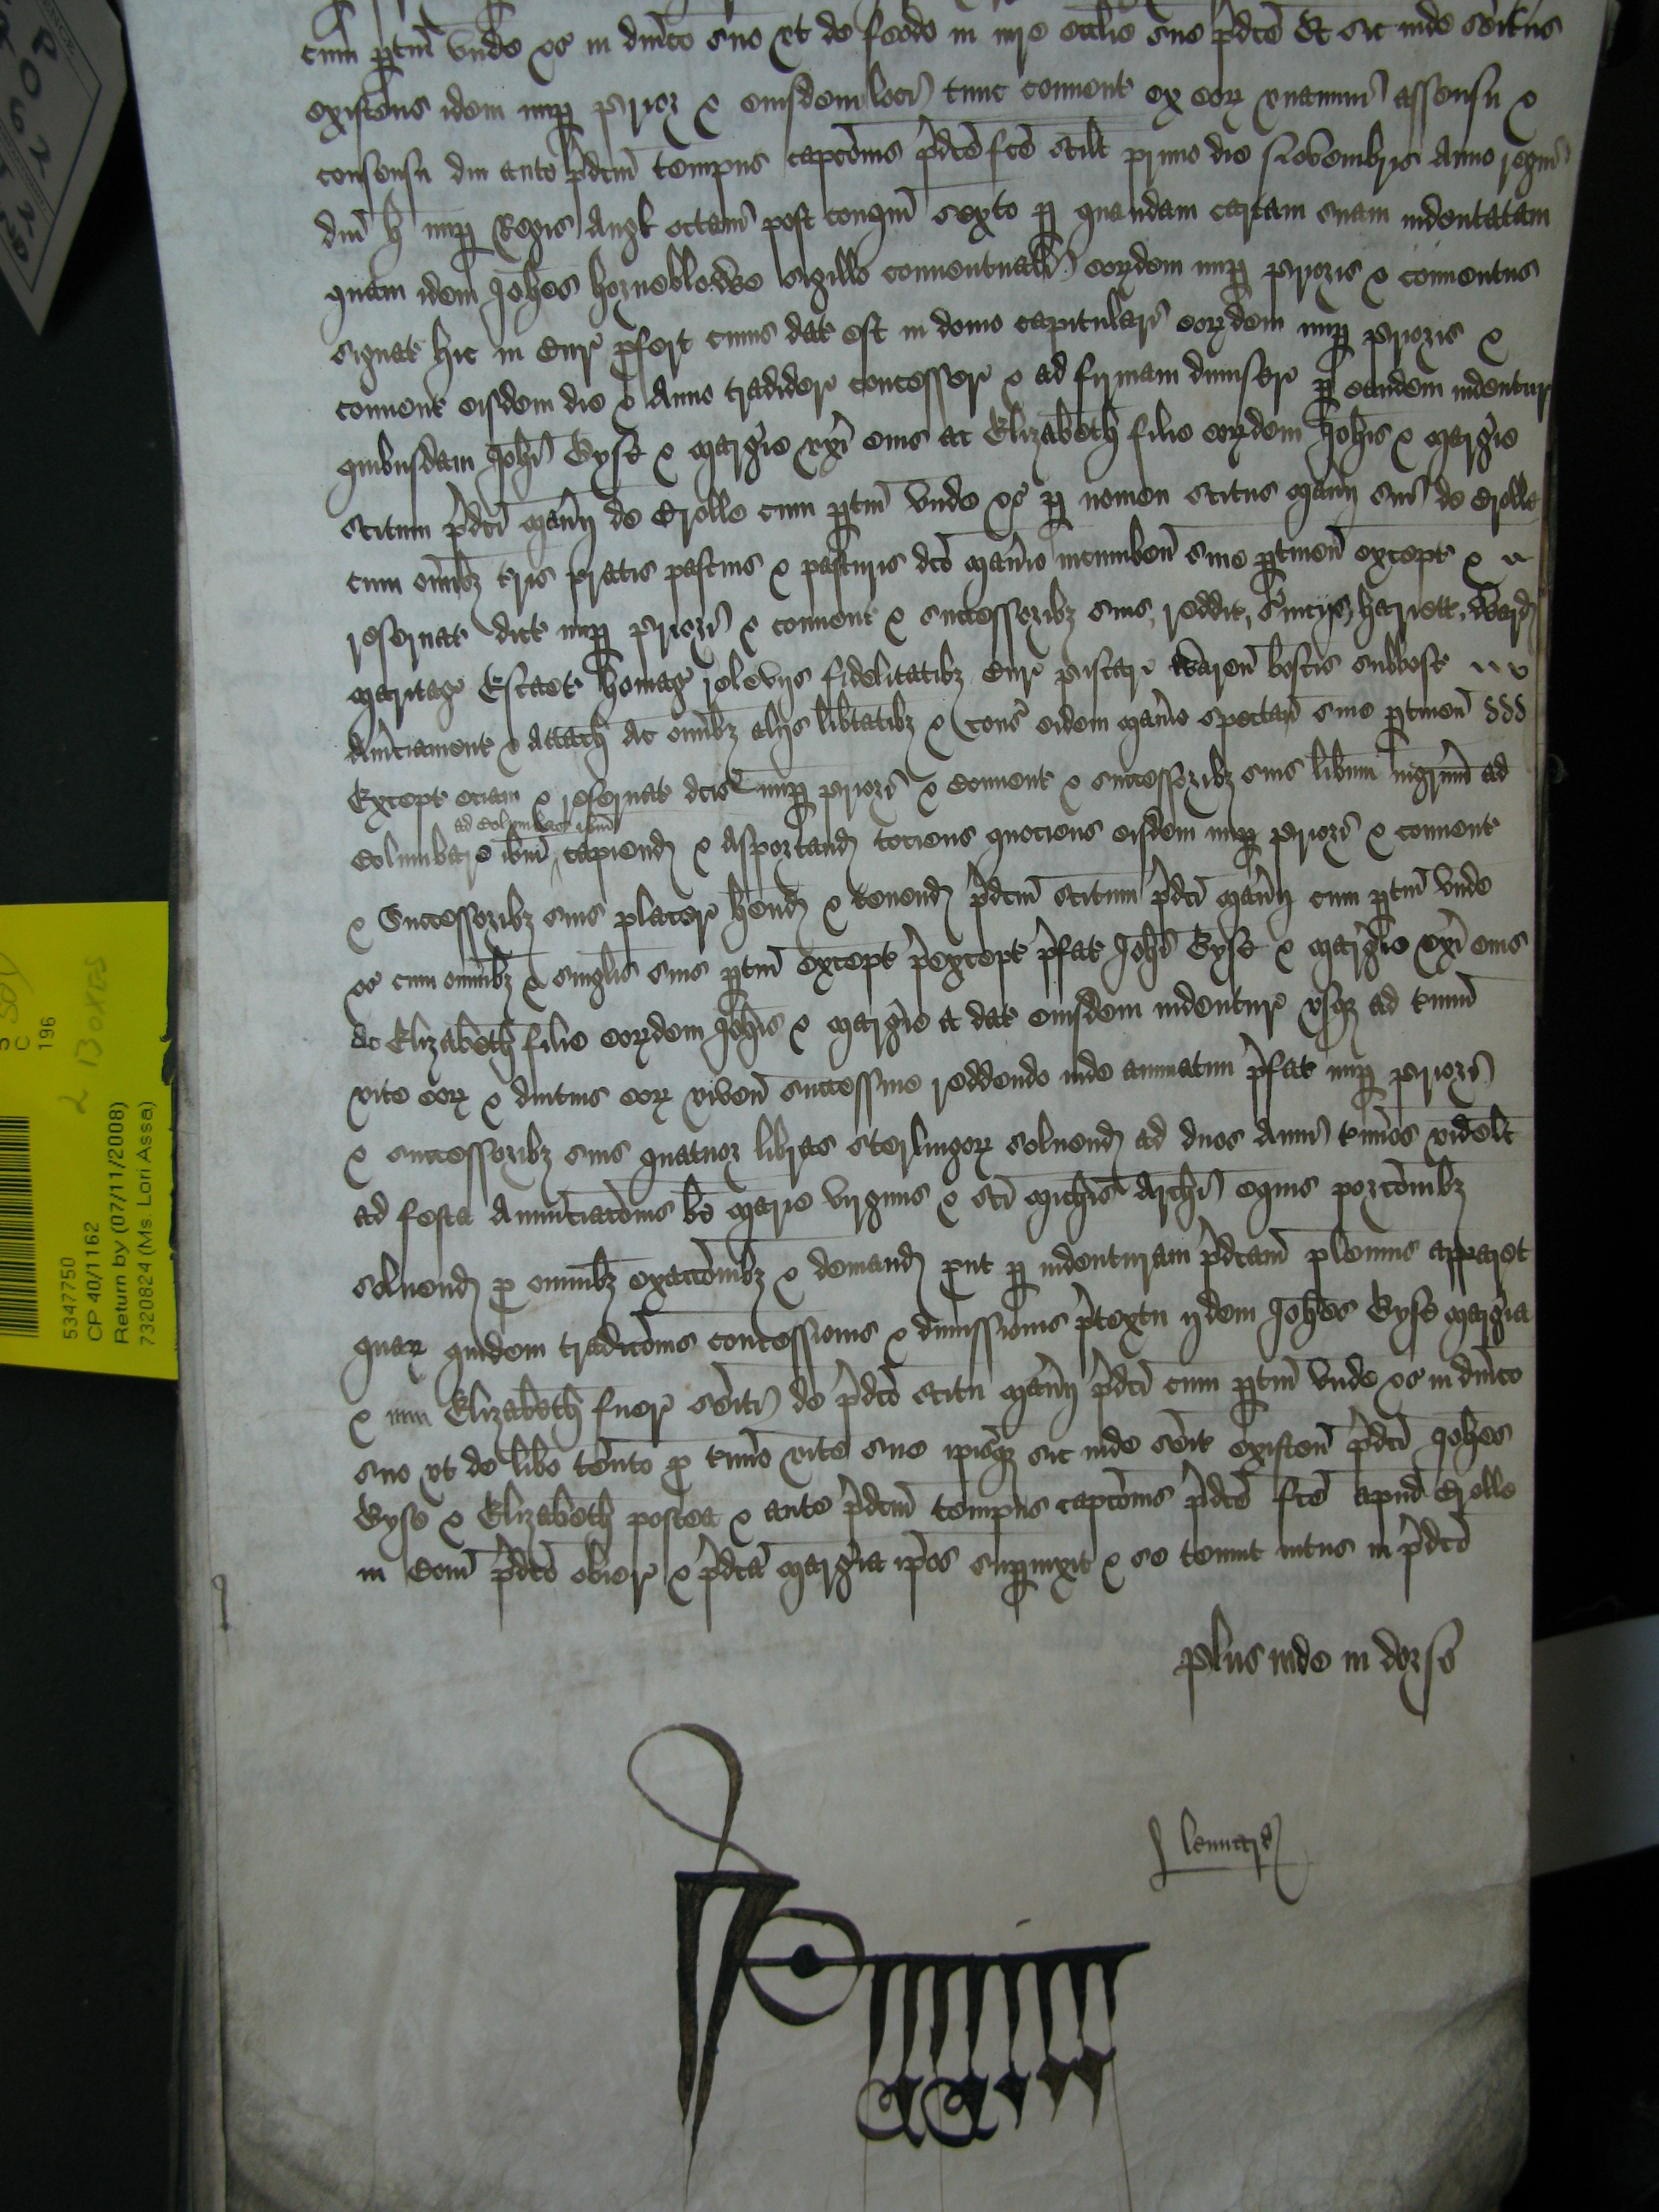 cum ptin vnde &c in dnico suo vt de feodo in iure ecclie sue pdce Et sic inde seitus
existens idem nup prior & eiusdem loci tunc convent ex eor vnanimi assensu &
consensu diu ante pdcm tempus capcois pdce fce scilt primo die Novembris Anno regni
dni H nup Regis Angl octavi post conqm sexto p quandam cartam suam indentatam
quam idem Johes Horneblowe sigillo conventuali eordem nup prioris & conventus
signat hic in Cur pfert cuius dat est in domo capitulari eordem nup prioris &
convent eisdem die & Anno tradider concesser & ad firmam dimiser p eandem indentur
quibusdam Johi Gyse & Margie vxi eius ac Elizabeth filie eordem Johis & Margie
scitum pdci Manij de Crolle cum ptin vnde &c p nomen scitus Manij sui de Crolle
cum omibz tris pratis pascuis & pasturis dco Manio incumben sive ptinen except &
reservat dict nup priori & convent & successoribz suis, reddit, svicijs, hariett, Ward
Maritag Escaet homag relevijs fidelitatibz Cur piscar Waren boscis subbosc
Amciament & Attach ac omibz alijs libtatibz & cons eidem Manio spectan sive ptinen
Except eciam & reservat dcis nup priori & convent & successoribz suis libum ingrum ad
Columbare ibm capiend & asportand tociens quociens eisdem nup priori & convent
ad Columbas ibm
& Successoribz suis placere hend & tenend pdcm scitum pdci Manij cum ptin vnde
&c cum omibz & singlis suis ptin except pexcept pfat Johi Gyse & Margie vxi eius
ac Elizabeth filie eordem Johis & Margie a dat eiusdem indenture vsqz ad tmm
vite eor & diutius eor viven successive reddendo inde annuatim pfat nup priori
& successoribz suis quatuor libras sterlingor solvend ad duos Anni tmios videlt
ad festa Annunciacois be Marie virginis & sci Michis Archi equis porcoibz
solvend p omibz exaccoibz & demand put p indenturam pdcam plenius apparet
quar quidem tradicois concessionis & dimissionis ptextu ijdem Johes Gyse Margia
& Elizabeth fuer seiti de pdco scitu Manij pdci cum ptin vnde &c in dnico
suo vt de libo tento p tmio vite sue ipisqz sic inde seit existen pdci Johes
Gyse & Elizabeth postea & ante pdcm tempus capcois pdce fce apud Crolle
in Com pdco obier & pdca Margia ipos supvixit & se tenuit intus in pdco
plus inde in dorso
5347750
CP 40/1162
Return by (07/11/2008)
7320824 (Ms. Lori Assa)
196
2 Boxes